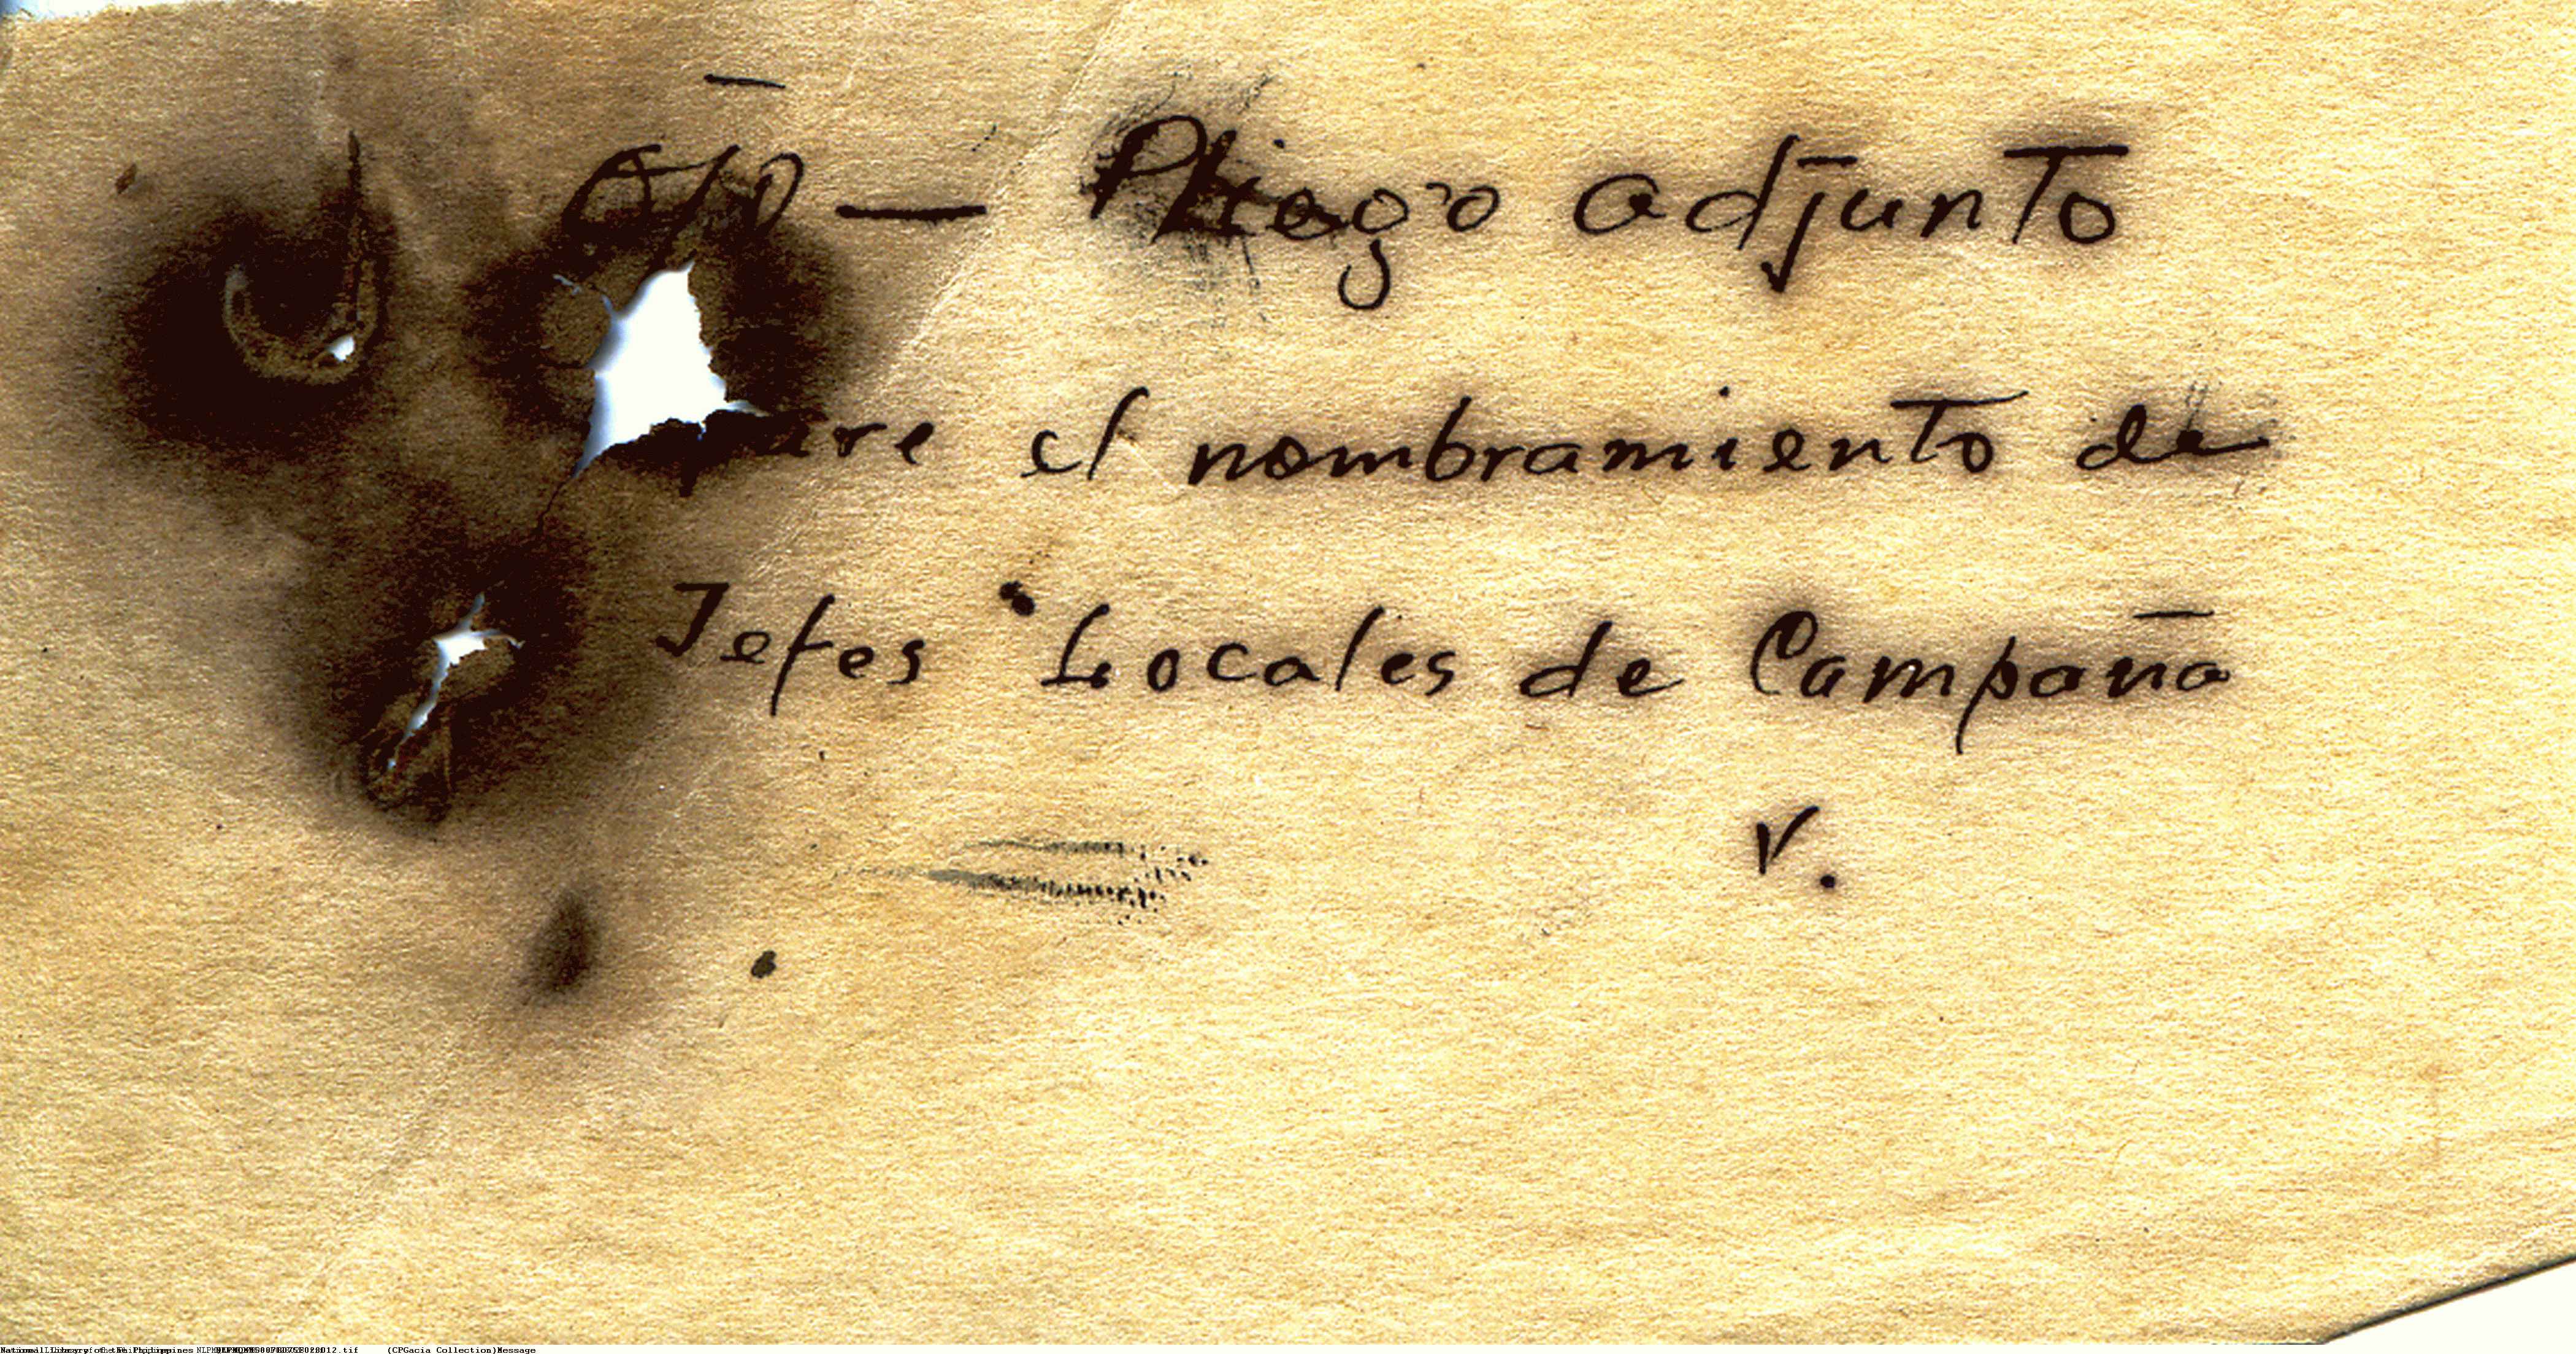 — Pliego adjunto
el nombramiento de
Jefes Locales de Campaña
V.
National Library of the Philippines (CPGacia Collection)Message